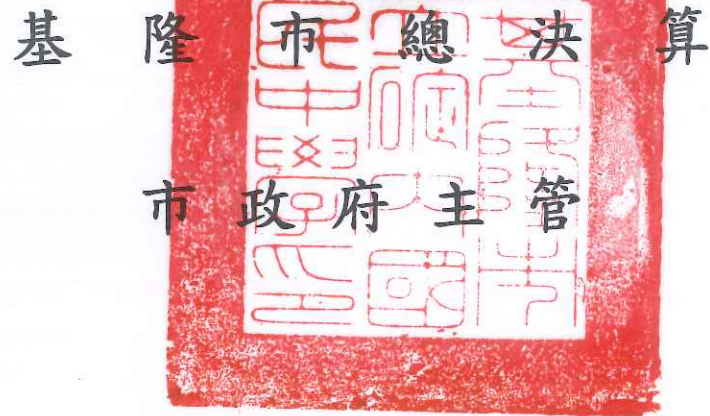 基隆市總決算
市政府主管